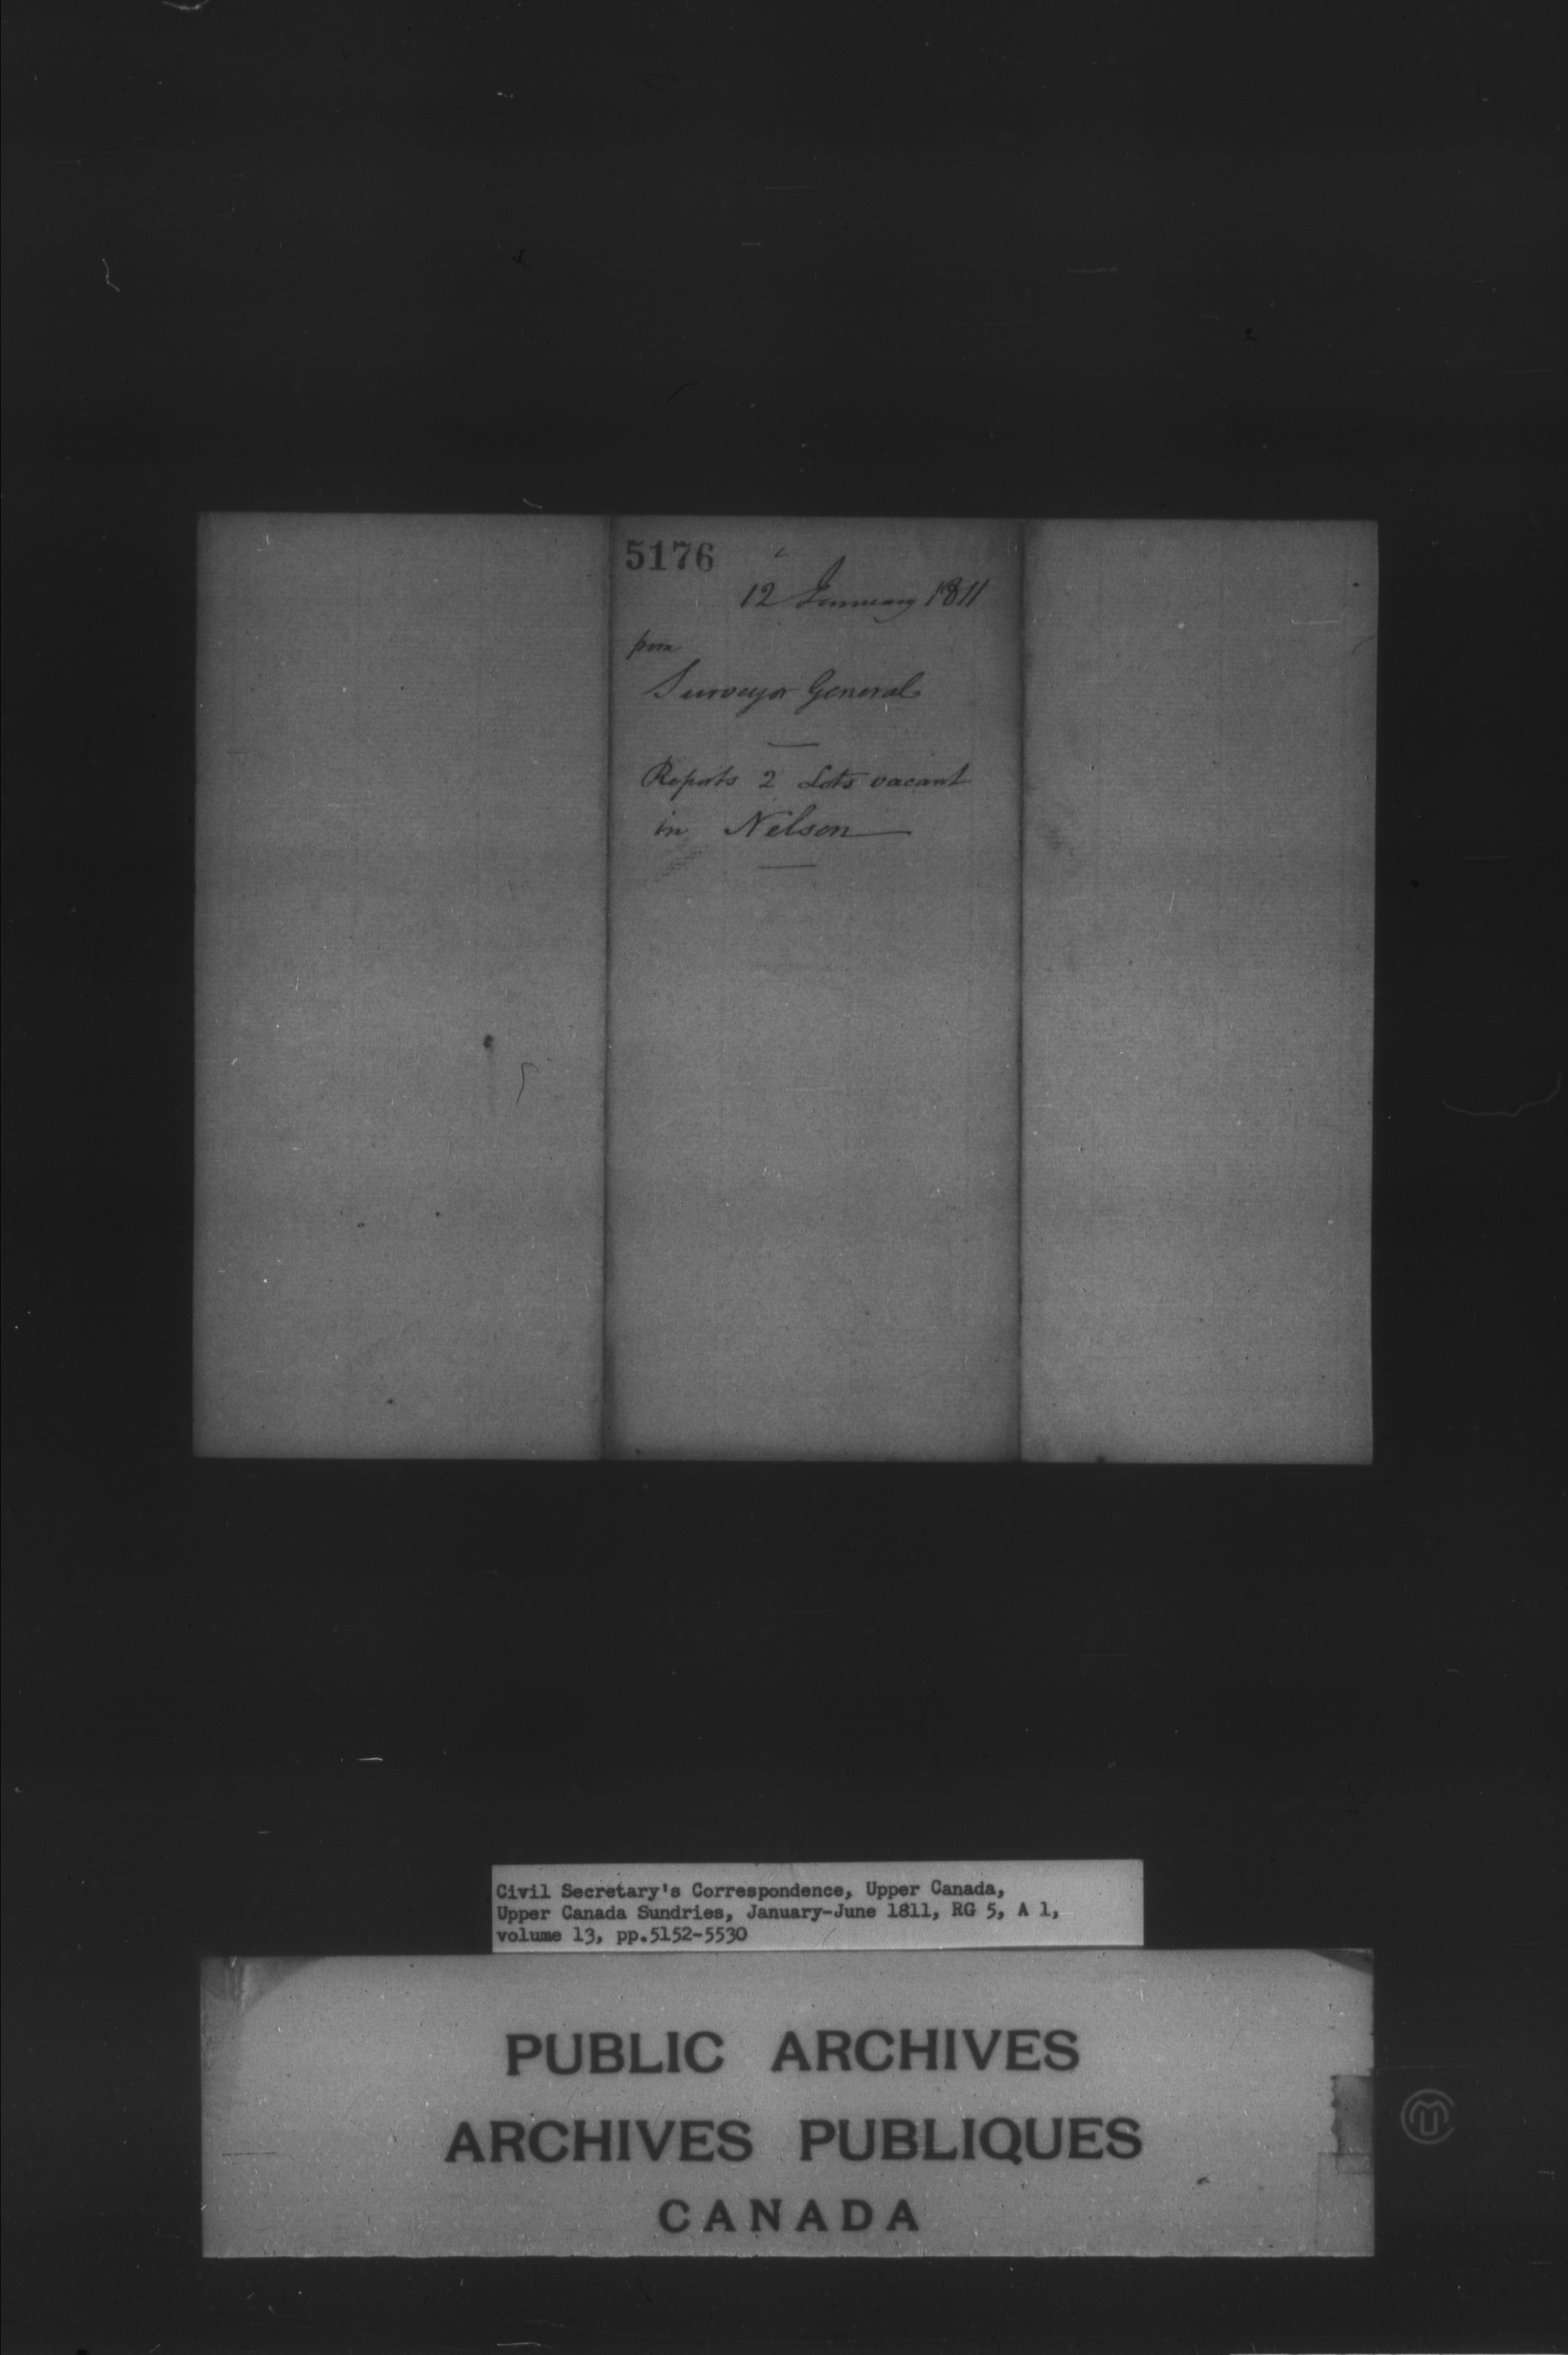 5176
12 January 1811
from
Surveyor General
Reports 2 Lots vacant
in Nelson
Civil Secretary's Correspondence, Upper Canada,
Upper Canada Sundries, January-June 1811, RG 5, A 1,
volume 13, pp.5152-5530
PUBLIC ARCHIVES
ARCHIVES PUBLIQUES
CANADA